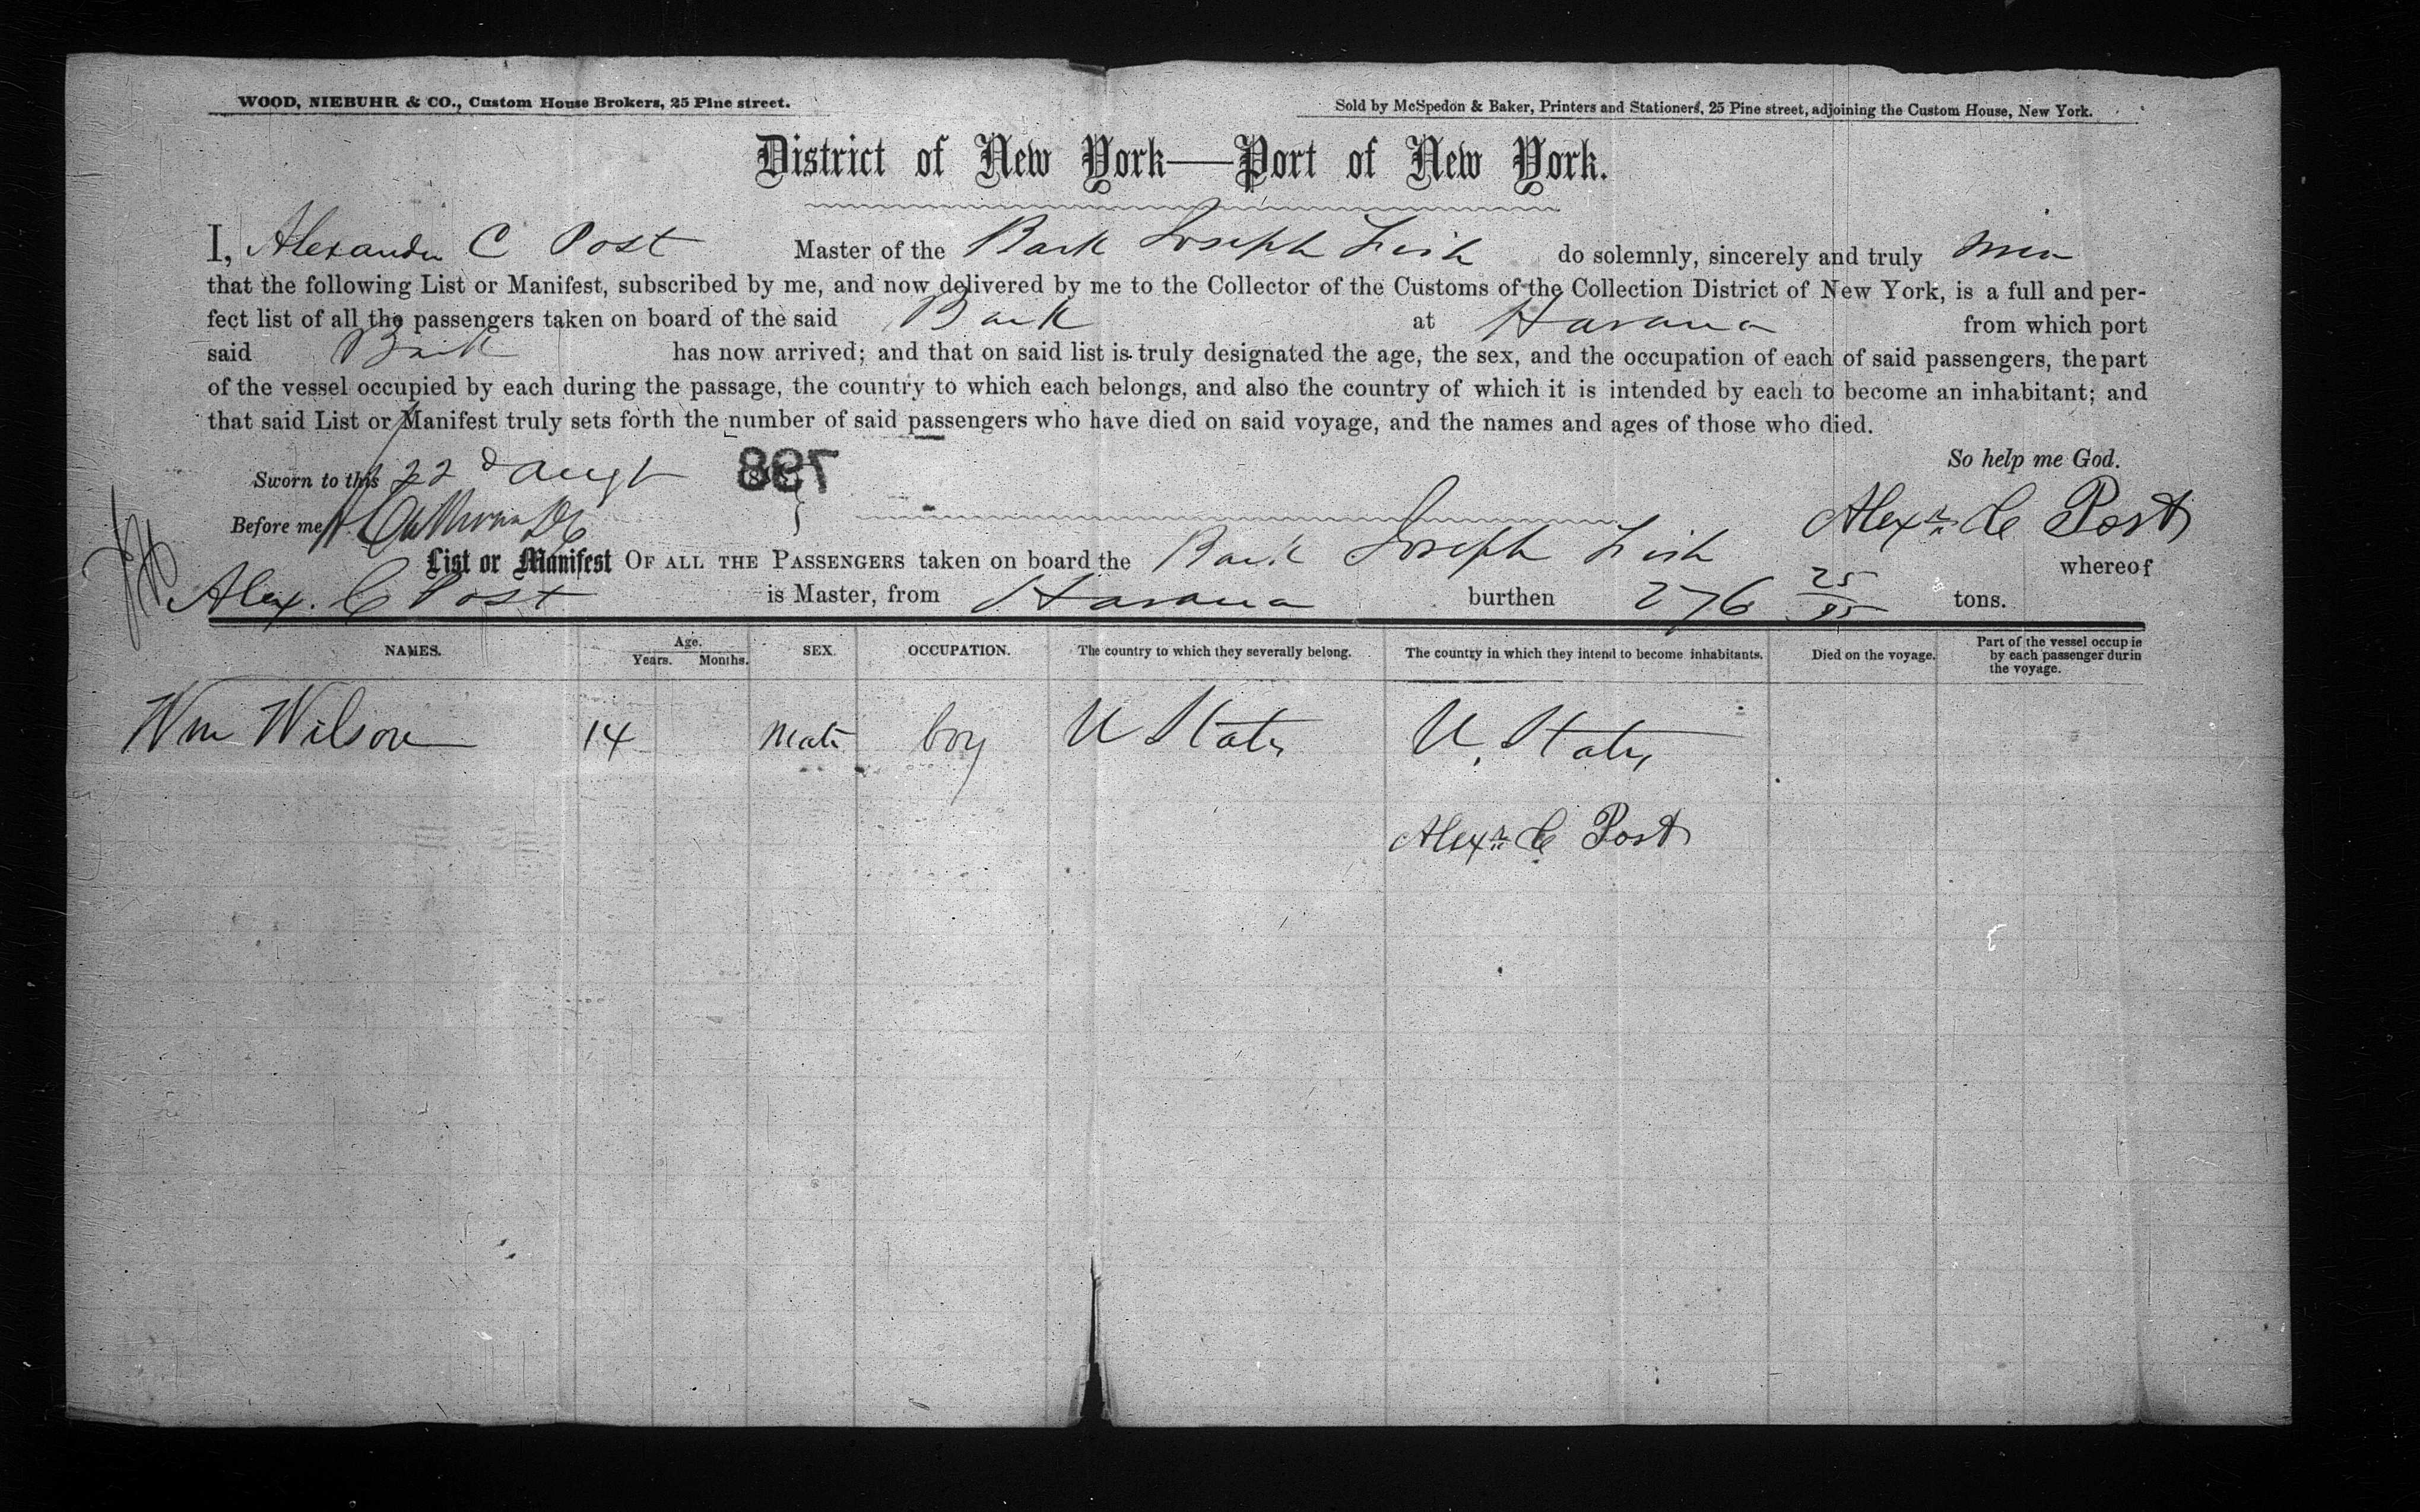 WOOD, NIEBUHR & CO., Custom House Brokers, 25 Pine street.
Sold by McSpedon & Baker, Printers and Stationers, 25 Pine street, adjoining the Custom House, New York.
District of New York—Port of New York.
I, Alexander C Post Master of the Bark Joseph Fish do solemnly, sincerely and truly
that the following List or Manifest, subscribed by me, and now delivered by me to the Collector of the Customs of the Collection District of New York, is a full and per-
fect list of all the passengers taken on board of the said Bark at Havana from which port
said Bark has now arrived; and that on said list is truly designated the age, the sex, and the occupation of each of said passengers, the part
of the vessel occupied by each during the passage, the country to which each belongs, and also the country of which it is intended by each to become an inhabitant; and
that said List or Manifest truly sets forth the number of said passengers who have died on said voyage, and the names and ages of those who died.
So help me God.
Sworn to this 22d Augt 798
Before me
Alexr C Post
List or Manifest OF ALL THE PASSENGERS taken on board the Bark Joseph Fish whereof
Alex. C Post is Master, from Havana burthen 276 25/95 tons.
NAMES. Age. Years. Months. SEX. OCCUPATION. The country to which they severally belong. The country in which they intend to become inhabitants. Died on the voyage. Part of the vessel occupie by each passenger durin the voyage.
Wm Wilson 14 Male boy U States U. States
Alexr C Post